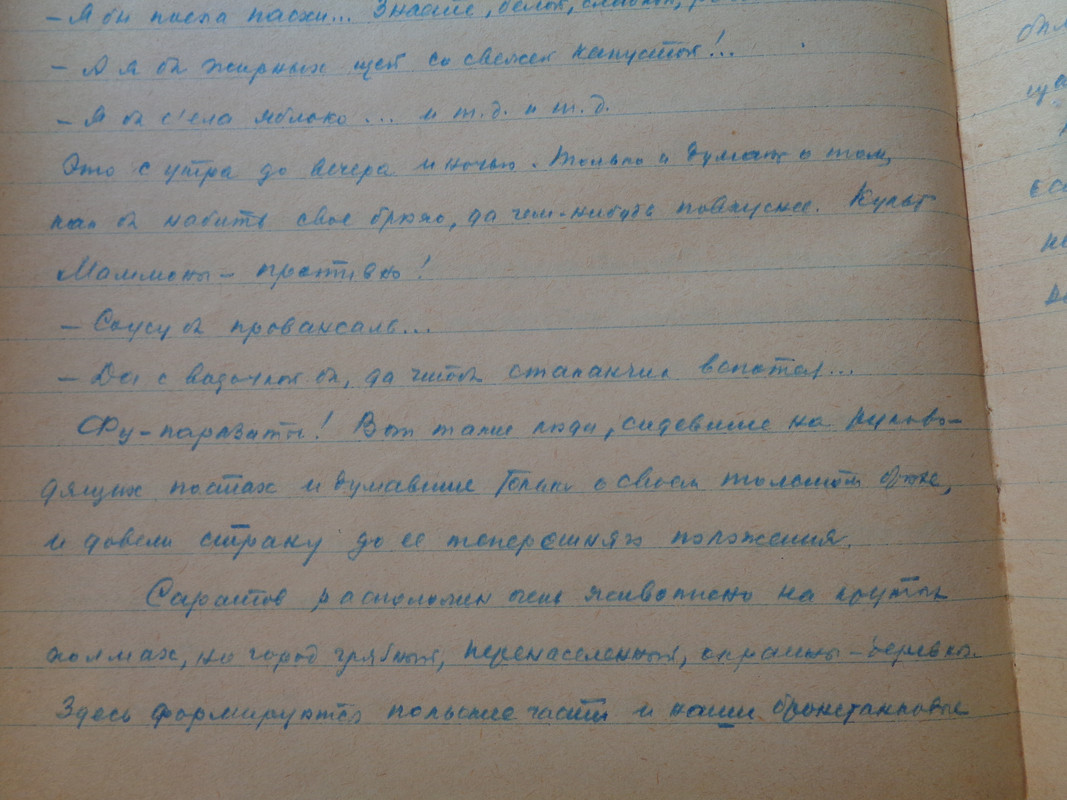 – Я бы поела пасхи... Знаете, белой, сладкой,
– А я бы жирных щей со свежей капустой!..
– Я бы с'ела яблоко... и т.д. и т.д.
Это с утра до вечера и ночью. Только и думают о том,
как бы набить свое брюхо, да чем-нибудь повкуснее. Культ
Маммоны – противно!
– Соусу бы провансаль...
– Да с водочкой бы, да чтобы стаканчик вспотел...
Фу – паразиты! Вот такие люди, сидевшие на руково-
дящих постах и думавшие только о своем толстом брюхе,
и довели страну до ее теперешнего положения.
Саратов расположен очень живописно на крутых
холмах, но город грязный, перенаселенный, окраины – деревня.
Здесь формируются польские части и наши бронетанковые
бы
ща
ес
не